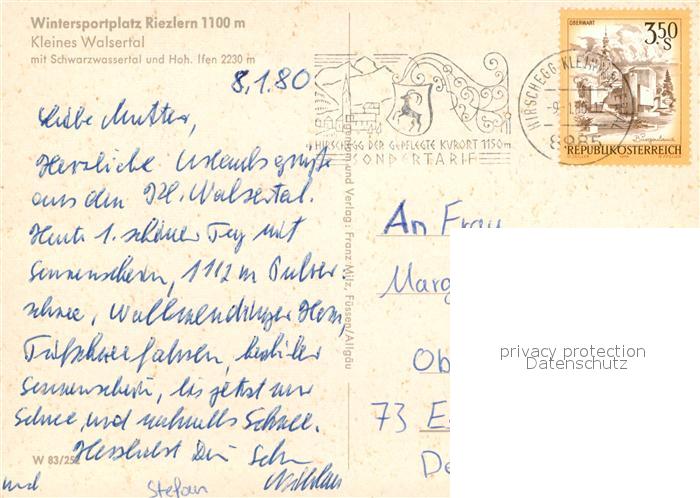 Wintersportplatz Riezlern 1100 m
Kleines Walsertal
mit Schwarzwassertal und Hoh. Ifen 2230 m
8.1.80
Liebe Mutter,
Herzliche Urlaubsgrüße
aus dem Kl. Walsertal.
Heute 1. schöner Tag mit
Sonnenschein, 1112 m Pulver
schnee, Wallmendinger Horn,
Tiefschneefahren,
Sonnenschein, bis jetzt nur
Schnee, und nochmals Schnee.
Herzlichst Dein Sohn
Nikolaus
und Stefan
W 83/252
Eigentum und Verlag: Franz Milz, Füssen/Allgäu
HIRSCHEGG DER GEPFLEGTE KURORT 1150m
SONDERTARIF
HIRSCHEGG, KLEINW
8985
OBERWART
3.50
S
Burgenland
REPUBLIK ÖSTERREICH
An Frau
Marg
Ob
73 E
De
privacy protection
Datenschutz